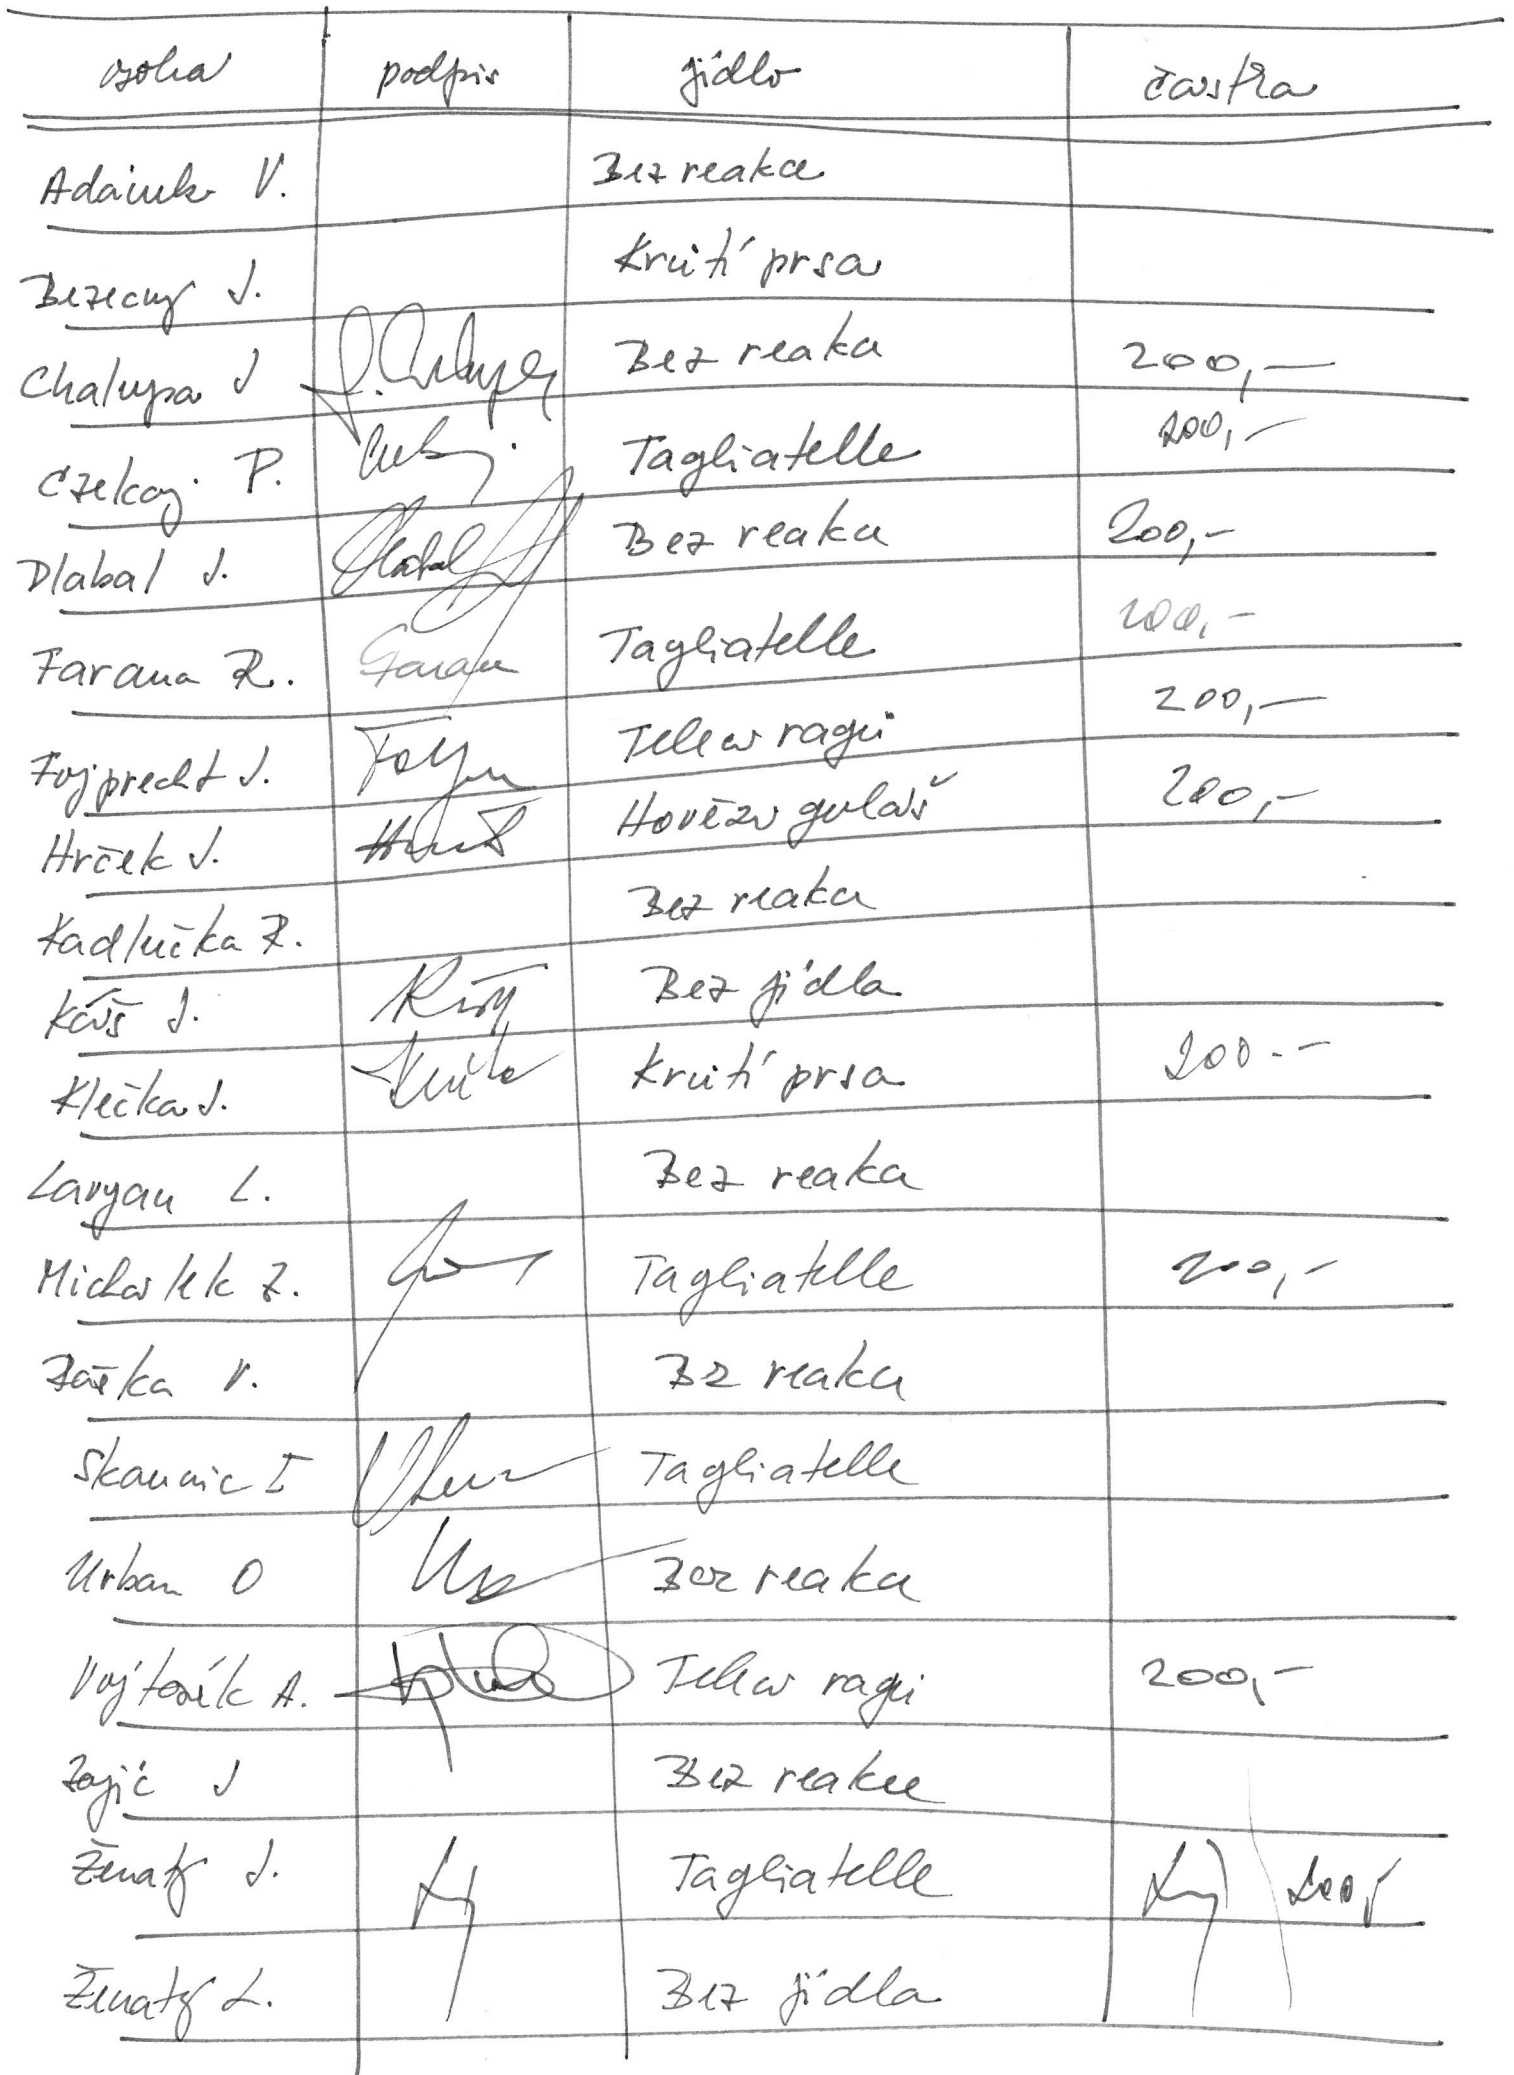 osoba podpis jídlo částka
Adámek V. Bez reakce
Bezecný J. Krůtí prsa
Chalupa J Bez reakce 200,-
Czekaj P. Tagliatelle 200,-
Dlabal J. Bez reakce 200,-
Farana R. Tagliatelle 200,-
Fojprecht J. Telecí ragú 200,-
Hrček J. Hovězí guláš 200,-
Kadlučka R. Bez reakce
Káš J. Bez jídla
Klečka J. Krůtí prsa 200.-
Bez reakce
Michálek Z. Tagliatelle 200,-
V. Bez reakce
Tagliatelle
Urban O Bez reakce
Vojtosík A. Telecí ragú 200,-
Zajíč J Bez reakce
Ženatý J. Tagliatelle 200,-
Ženatý L. Bez jídla